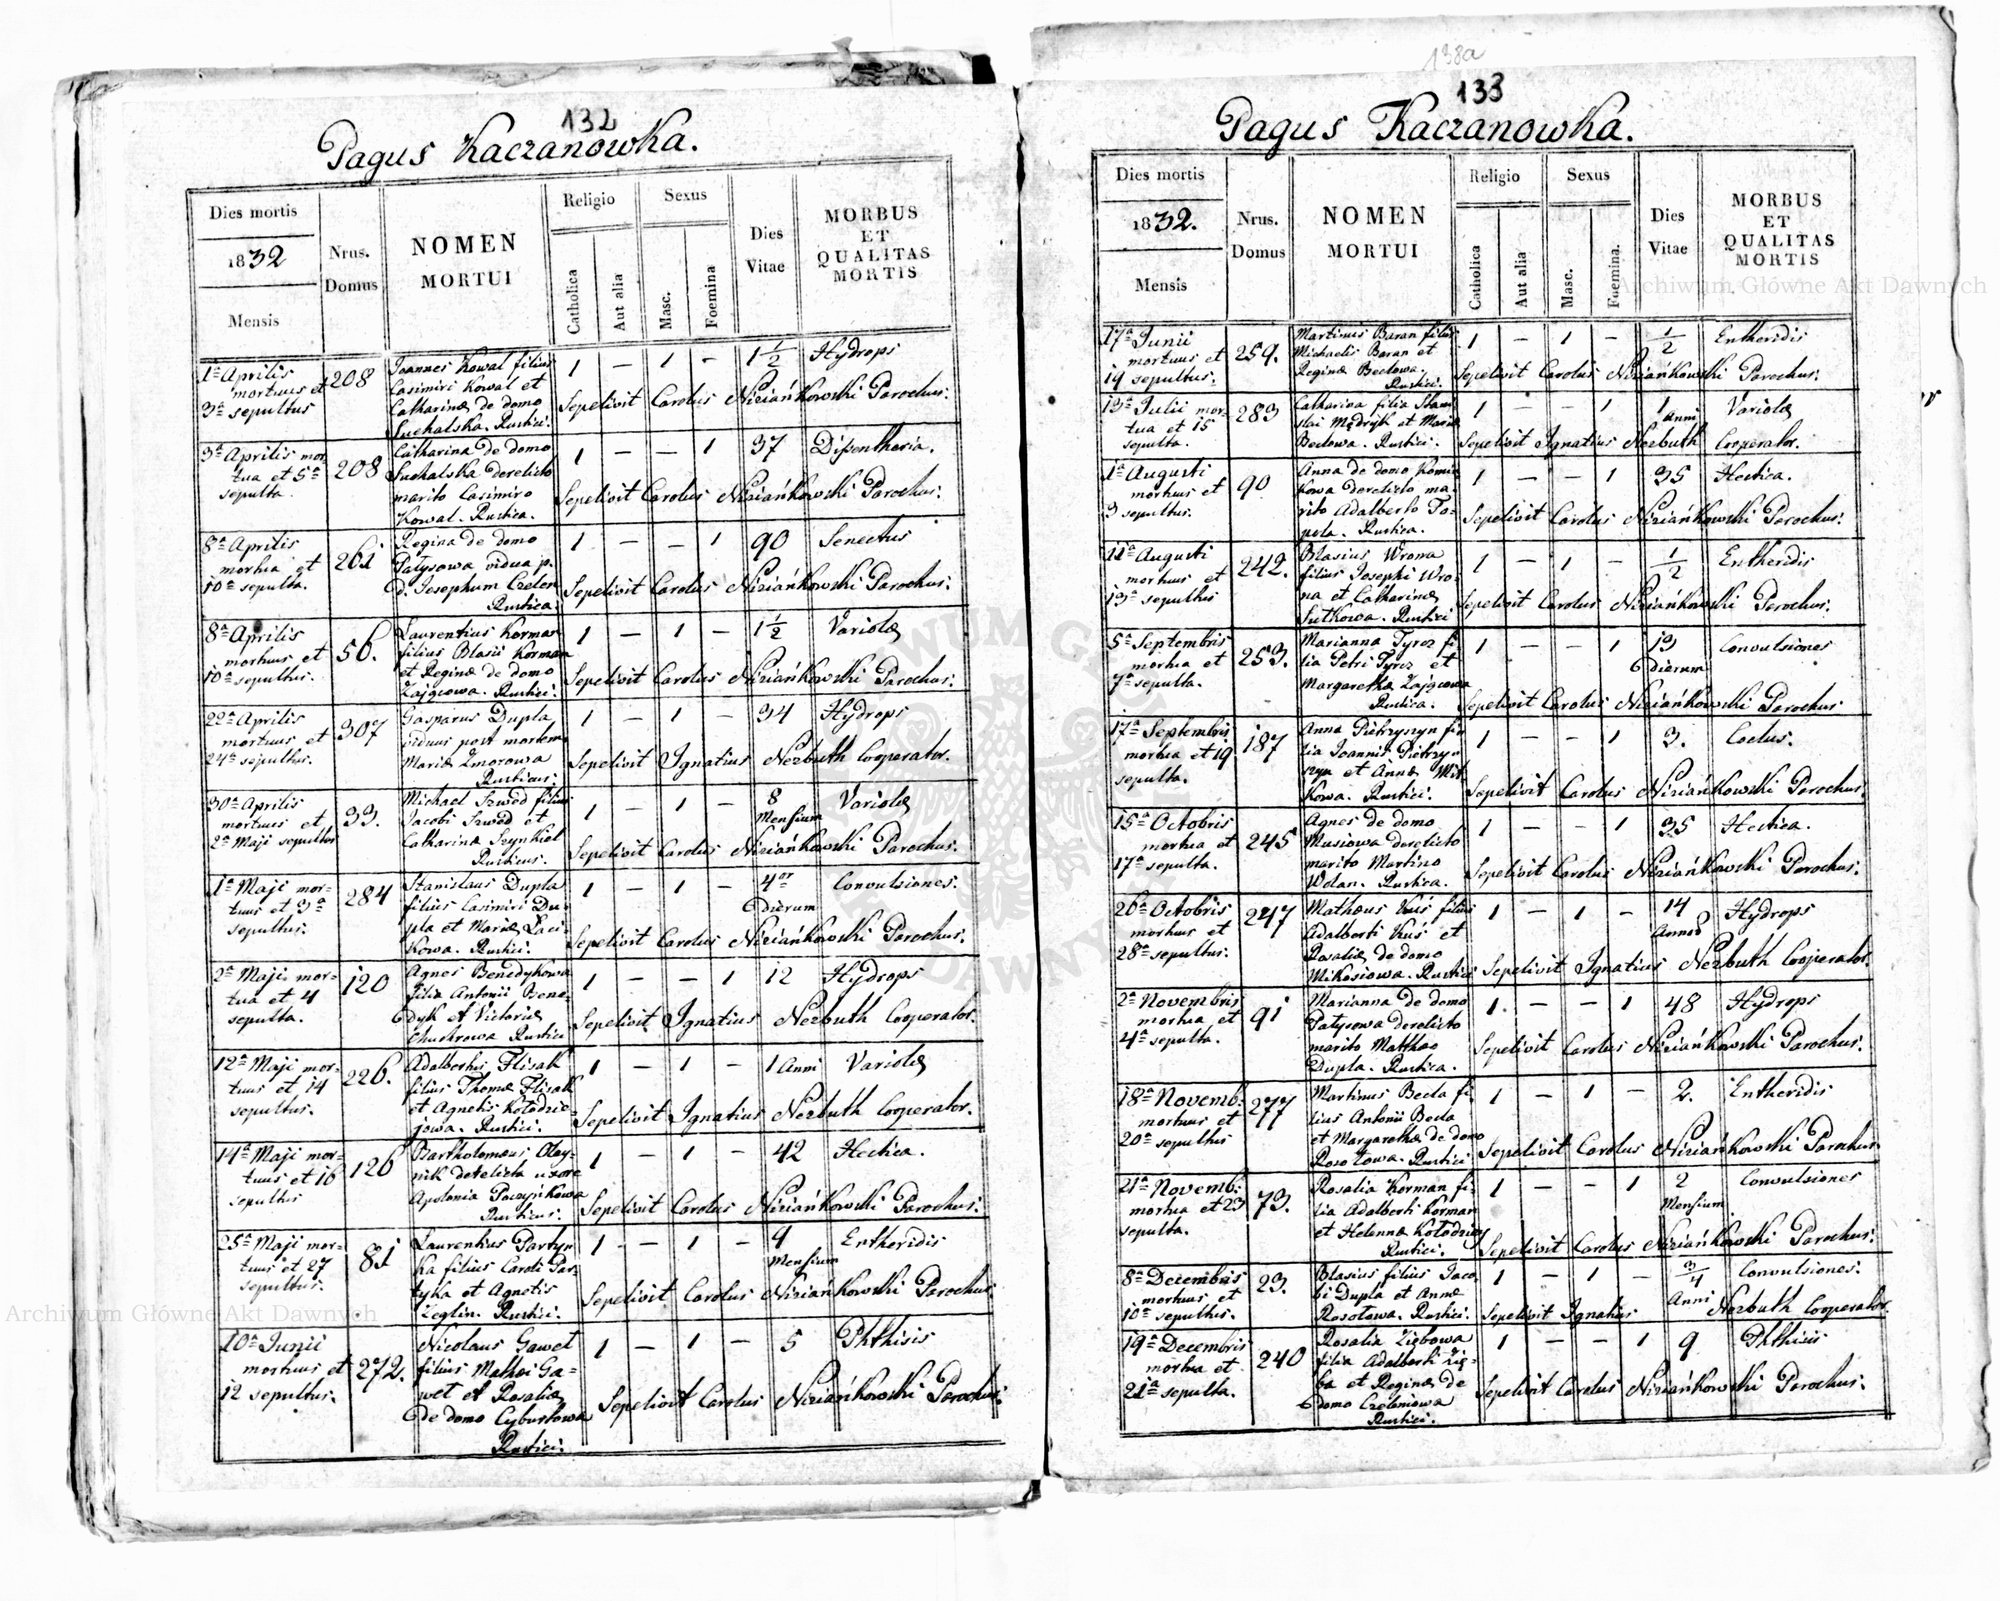 132
Pagus Kaczanowka.
Dies mortis
1832
Mensis
Nrus.
Domus
NOMEN
MORTUI
Religio
Catholica
Aut alia
Sexus
Masc.
Foemina
Dies
Vitae
MORBUS
ET
QUALITAS
MORTIS
1ª Aprilis
mortuus et
3ª sepultus
208
Joannes Kowal filius
Casimiri Kowal et
Catharinæ de domo
Suchalska. Rustici.
1 — 1 — 1 1/2 Hydrops
Sepelivit Carolus Niziańkowski Parochus.
3ª Aprilis mor
tua et 5ª
sepulta.
208
Catharina de domo
Suchalska derelicto
marito Casimiro
Kowal. Rustica.
1 — — 1 37 Dißentheria.
Sepelivit Carolus Niziańkowski Parochus.
8ª Aprilis
mortua et
10ª sepulta.
261
Regina de domo
Patysowa vidua p.
d. Josephum Czelen
Rustica.
1 — — 1 90 Senectus
Sepelivit Carolus Niziańkowski Parochus.
8ª Aprilis
mortuus et
10ª sepultus.
56.
Laurentius Korman
filius Blasii Korman
et Reginæ de domo
Zającowa. Rustici.
1 — 1 — 1 1/2 Variolæ
Sepelivit Carolus Niziańkowski Parochus.
22ª Aprilis
mortuus et
24ª sepultus.
307
Gasparus Dupla
viduus post mortem
Mariæ Zmorowa
Rusticus.
1 — 1 — 34 Hydrops
Sepelivit Ignatius Nerbuth Cooperator.
30ª Aprilis
mortuus et
2ª Maji sepultus
33.
Michael Szwed filius
Jacobi Szwed et
Catharinæ Szynkiel
Rusticus.
1 — 1 — 8
Mensium
Variolæ
Sepelivit Carolus Niziańkowski Parochus.
1ª Maji mor-
tuus et 3ª
sepultus.
284
Stanislaus Dupla
filius Casimiri Du-
pla et Mariæ Laci-
kowa. Rustici.
1 — 1 — 4or
dierum
Convulsiones.
Sepelivit Carolus Niziańkowski Parochus.
2ª Maji mor-
tua et 4
sepulta.
120
Agnes Benedykowa
filia Antonii Bene-
dyk et Victoriæ
Chuchrowa Rustici
1 — — 1 12 Hydrops
Sepelivit Ignatius Nerbuth Cooperator.
12ª Maji mor-
tuus et 14
sepultus.
226.
Adalbertus Flisak
filius Thomæ Flisak
et Agnetis Kołodzie-
jowa. Rustici.
1 — 1 — 1 Anni Variolæ
Sepelivit Ignatius Nerbuth Cooperator.
14ª Maji mor-
tuus et 16
sepultus
126
Bartholomæus Oley-
nik derelicta uxore
Apolonia Paczyńkowa
Rusticus.
1 — 1 — 42 Hectica.
Sepelivit Carolus Niziańkowski Parochus.
25ª Maji mor-
tuus et 27
sepultus.
81
Laurentius Party-
ka filius Caroli Par-
tyka et Agnetis
Zeglin. Rustici.
1 — 1 — 9
Mensium
Entheridis
Sepelivit Carolus Niziańkowski Parochus
10ª Junii
mortuus et
12 sepultus.
272.
Nicolaus Gawet
filius Mathei Ga-
wet et Rosaliæ
de domo Cyburtowa
Rustici.
1 — 1 — 5 Phthisis
Sepelivit Carolus Niziańkowski Parochus.
138a
133
Pagus Kaczanowka.
Dies mortis
1832.
Mensis
Nrus.
Domus
NOMEN
MORTUI
Religio
Catholica
Aut alia
Sexus
Masc.
Foemina.
Dies
Vitae
MORBUS
ET
QUALITAS
MORTIS
17ª Junii
mortuus et
19 sepultus.
259.
Martinus Baran filius
Michaelis Baran et
Reginæ Beclowa.
Rustici.
1 — 1 — 1/2 Entheridis
Sepelivit Carolus Niziańkowski Parochus.
13ª Julii mor-
tua et 15
sepulta.
283
Catharina filia Stani
slai Mądryk et Mariæ
Beclowa. Rustici.
1 — — 1 1
Anni
Variolæ
Sepelivit Ignatius Nerbuth Cooperator.
1ª Augusti
mortuus et
3 sepultus.
90
Anna de domo Komin
kowa derelicto ma-
rito Adalberto To-
pola. Rustica.
1 — — 1 35 Hectica.
Sepelivit Carolus Niziańkowski Parochus.
11ª Augusti
mortuus et
13ª sepultus
242.
Blasius Wrona
filius Josephi Wro-
na et Catharinæ
Sutkowa. Rustici
1 — 1 — 1/2 Entheridis
Sepelivit Carolus Niziańkowski Parochus.
5ª Septembris
mortua et
7ª sepulta.
253.
Marianna Tyroz fi
lia Petri Tyroz et
Margarethæ Zającowa
Rustica.
1 — — 1 13
dierum
Convulsiones
Sepelivit Carolus Niziańkowski Parochus
17ª Septembris
mortua et 19
sepulta.
187
Anna Pietryszyn fi-
lia Joannis Pietryzy-
szyn et Annæ Mit
kowa. Rustici.
1 — — 1 3. Coelus.
Sepelivit Carolus Niziańkowski Parochus.
15ª Octobris
mortua et
17ª sepulta.
245
Agnes de domo
Musiowa derelicto
marito Martino
Wolan. Rustica.
1 — — 1 35 Hectica.
Sepelivit Carolus Niziańkowski Parochus.
26ª Octobris
mortuus et
28ª sepultus.
247
Mathæus Kuś filius
Adalberti Kuś et
Rosaliæ de domo
Mikosiowa. Rustici
1 — 1 — 14
Annor
Hydrops
Sepelivit Ignatius Nerbuth Cooperator.
2ª Novembris
mortua et
4ª sepulta.
91
Marianna de domo
Patysowa derelicto
marito Matthæo
Dupla. Rustica.
1. — — 1 48 Hydrops
Sepelivit Carolus Niziańkowski Parochus.
18ª Novemb.
mortuus et
20ª sepultus
277
Martinus Becla fi-
lius Antonii Becla
et Margarethæ de domo
Rosołowa. Rustici
1 — 1 — 2. Entheridis
Sepelivit Carolus Niziańkowski Parochus.
21ª Novemb.
mortua et 23
sepulta.
73.
Rosalia Korman fi-
lia Adalberti Korman
et Helennæ Kołodziej
Rustici.
1 — — 1 2
Mensium
Convulsiones
Sepelivit Carolus Niziańkowski Parochus.
8ª Decembris
mortuus et
10ª sepultus.
23.
Blasius filius Jaco
bi Dupla et Annæ
Rosołowa. Rustici.
1 — 1 — 3/4
Anni
Convulsiones.
Sepelivit Ignatius Nerbuth Cooperator.
19ª Decembris
mortua et
21ª sepulta.
240
Rosalia Ziębowa
filia Adalberti Zię-
ba et Reginæ de
domo Czeleniowa
Rustici.
1 — — 1 9 Phthisis
Sepelivit Carolus Niziańkowski Parochus.
Archiwum Główne Akt Dawnych
Archiwum Główne Akt Dawnych